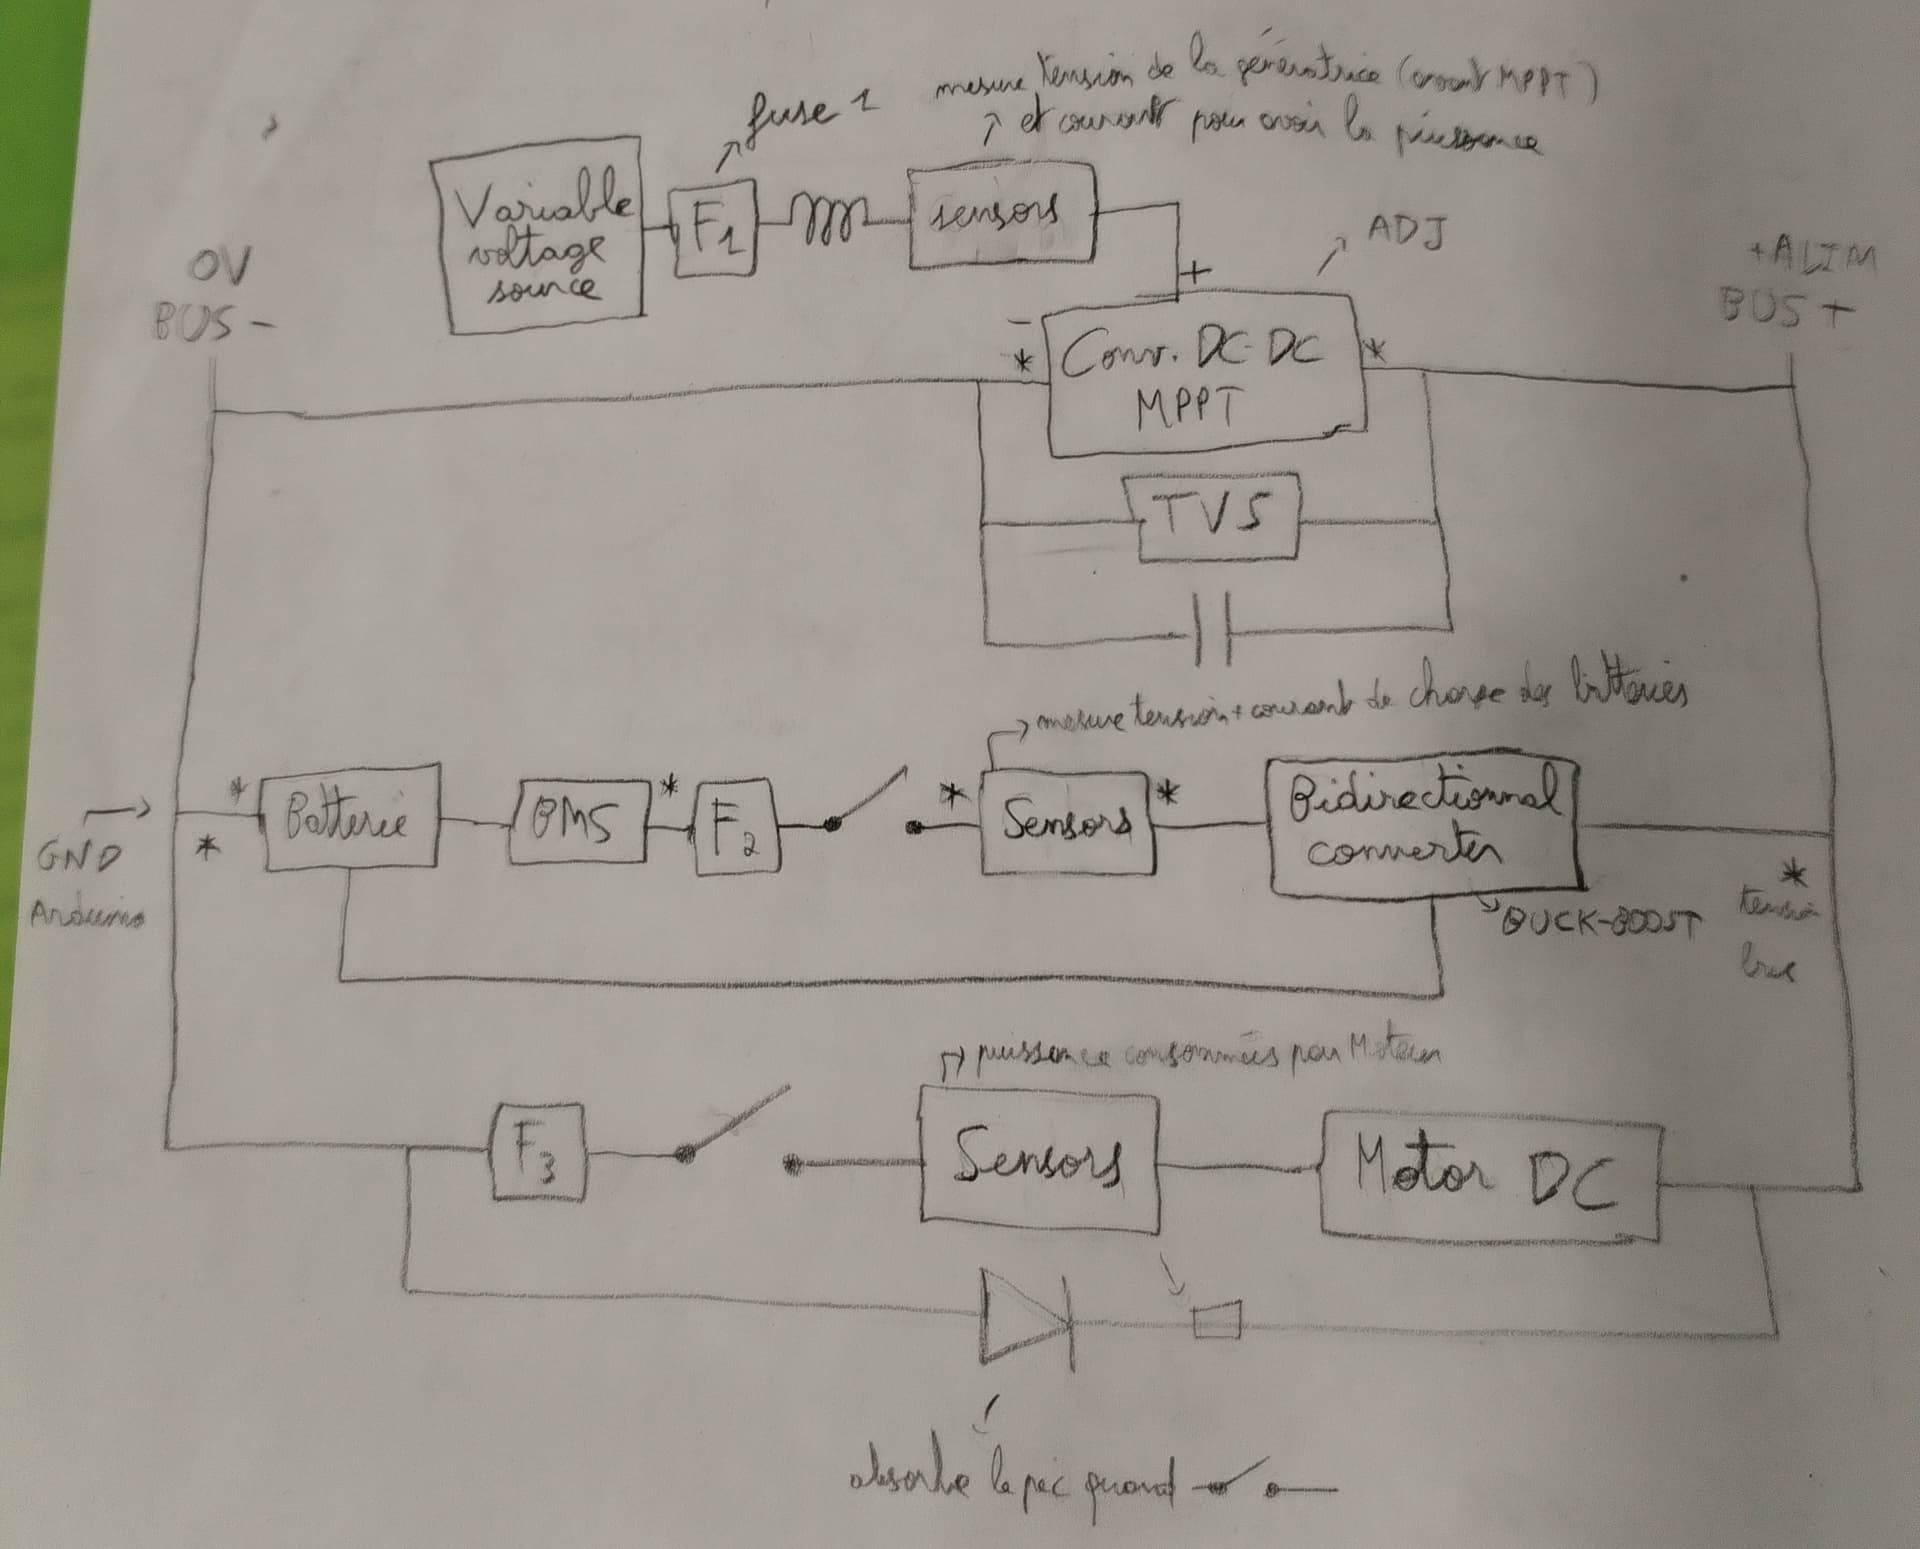 fuse 1
mesure tension de la génératrice (avant MPPT)
et courant pour avoir la puissance
Variable
voltage
source
F1
sensors
ADJ
0V
BUS -
+ALIM
BUS +
+
-
*
Conv. DC-DC
MPPT
*
TVS
mesure tension + courant de charge des batteries
GND
Arduino
*
*
Batterie
BMS
*
F2
*
Sensors
*
Bidirectionnal
converter
BUCK-BOOST
*
tension
bus
puissance consommées par Moteur
F3
Sensors
Motor DC
absorbe le pic quand